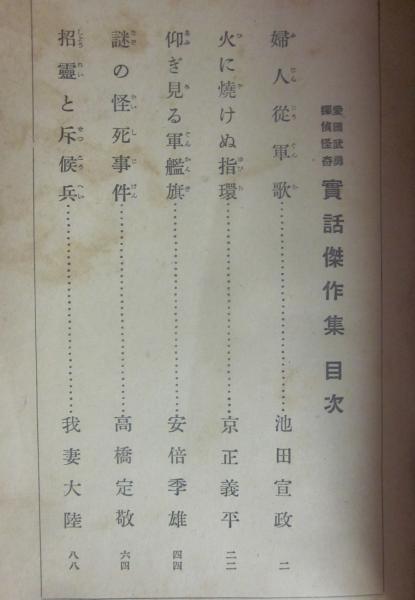 愛國武勇
探偵怪奇
實話傑作集 目次
婦人從軍歌 池田宣政 二
火に燒けぬ指環 京正義平 二二
仰ぎ見る軍艦旗 安倍季雄 四四
謎の怪死事件 高橋定敬 六四
招靈と斥候兵 我妻大陸 八八